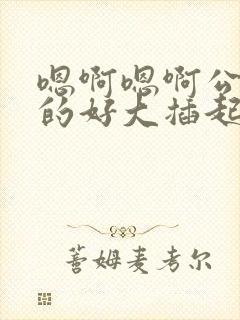 嗯啊嗯啊公
的好大插起
蓍姆麦考尔